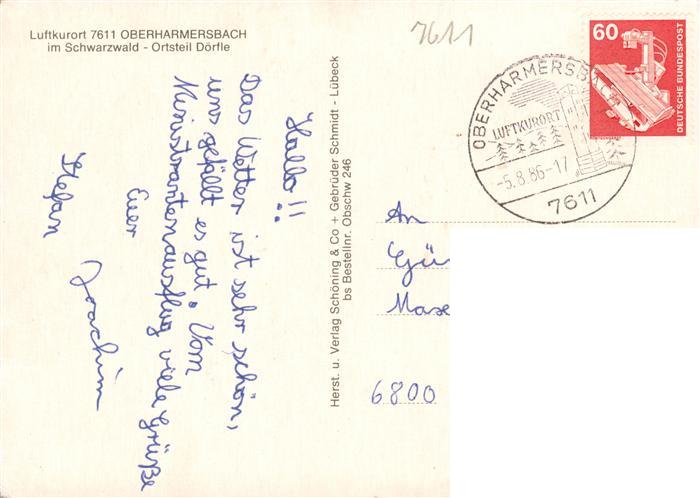 Luftkurort 7611 OBERHARMERSBACH
im Schwarzwald - Ortsteil Dörfle
7611
Hallo!!
Das Wetter ist sehr schön,
uns gefällt es gut. Vom
Ministrantenausflug viele Grüße
Euer
Stefan Joachim
Herst. u. Verlag Schöning & Co + Gebrüder Schmidt - Lübeck
bs Bestellnr. Obschw 246
60
DEUTSCHE BUNDESPOST
LUFTKURORT
-5.8.86-17
7611
An
6800